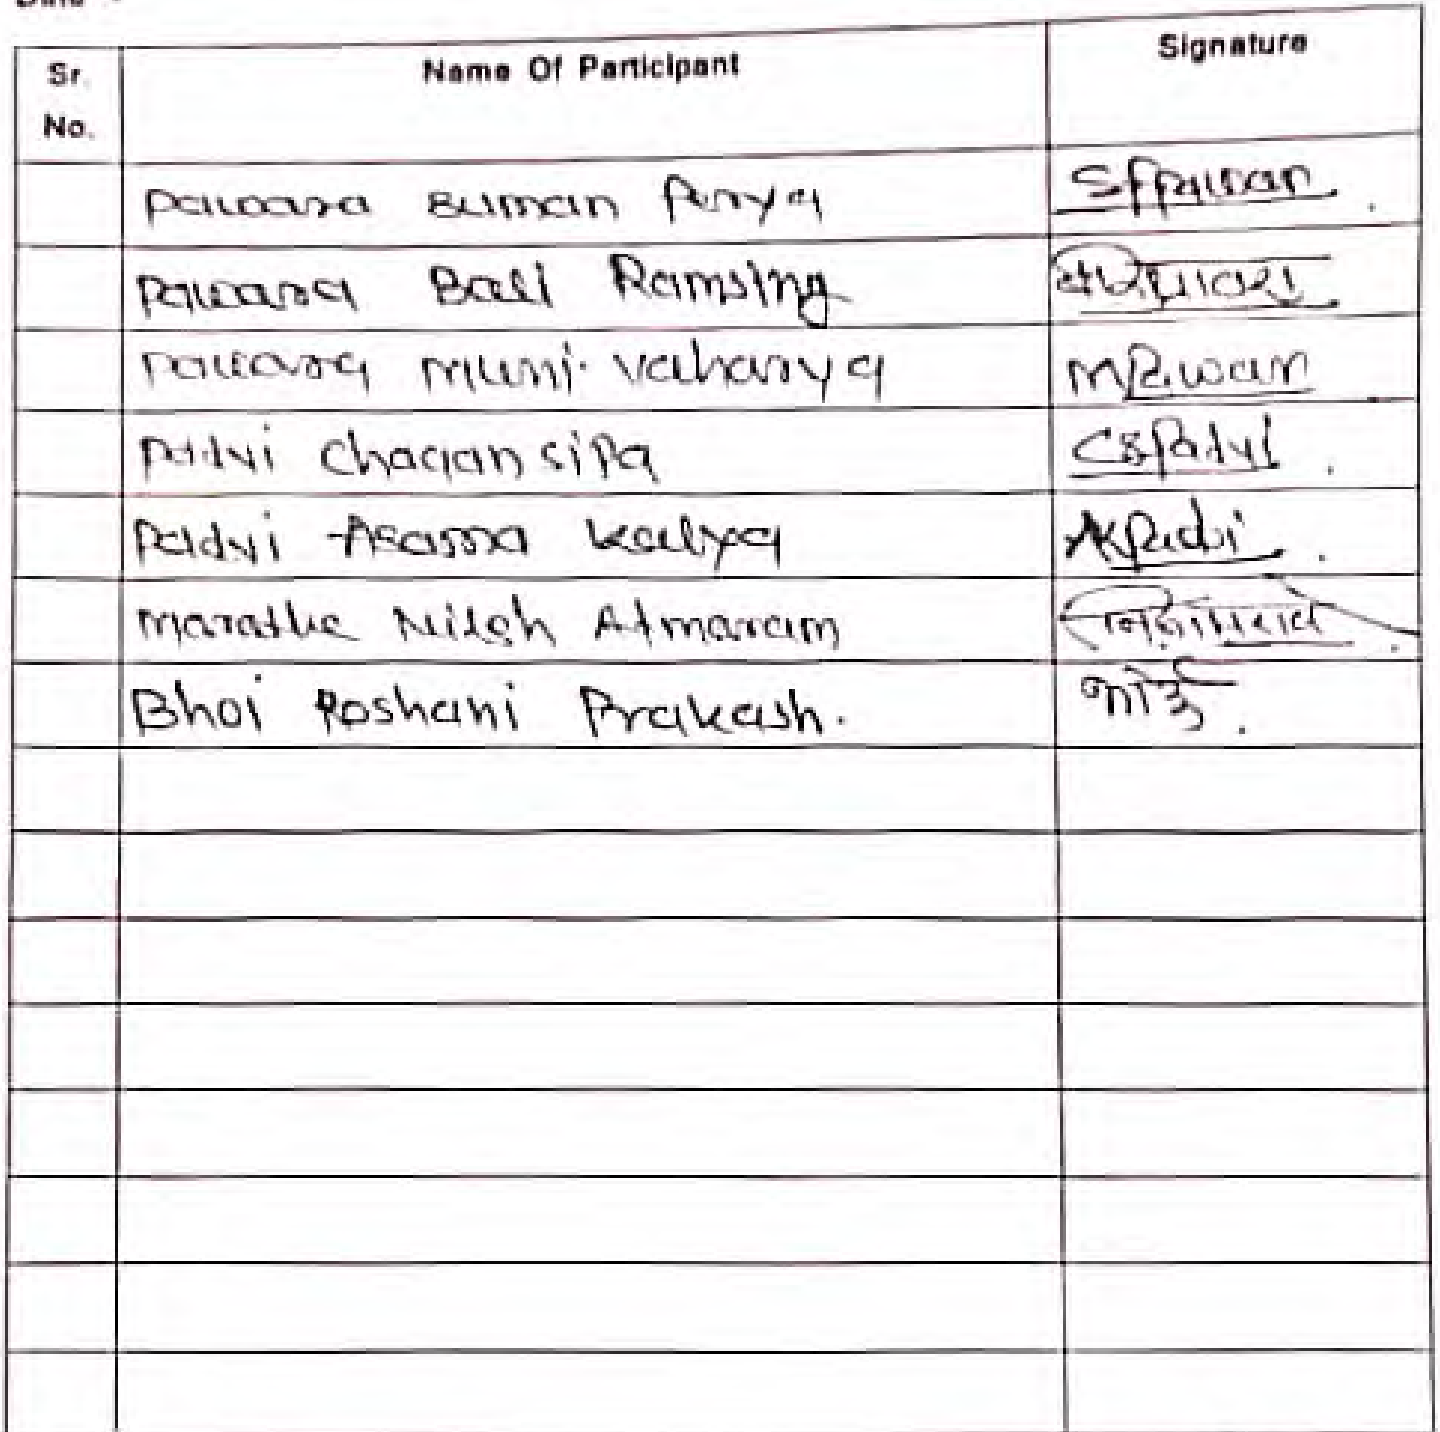 Date
Sr. No. Name Of Participant Signature
Pawara Suman Penya SPPawar
Pawara Basi Ramsing
Pawara Muni. Vaharya MPawar
Padvi Chagan sipa CSPadvi
Padvi Asarra Kalya AKPadvi
Marathe Nilesh Atmaram
Bhoi Roshani Prakash. भोई